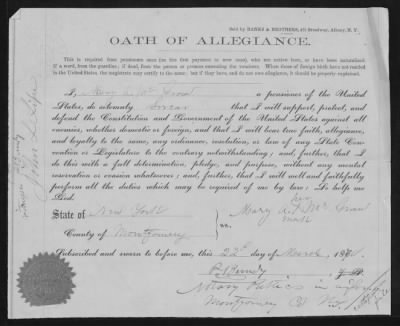 Sold by BANKS & BROTHERS, 475 Broadway, Albany, N. Y.
OATH OF ALLEGIANCE.
This is required from pensioners once (on the first payment to new ones), who are native born, or have been naturalized.
If a ward, from the guardian; if dead, from the person or persons executing the vouchers. When those of foreign birth have not resided
in the United States, the magistrate may certify to the same; but if they have, and do not owe allegiance, it should be properly explained.
I, Mary A. Mc Grow a pensioner of the United
States, do solemnly Swear that I will support, protect, and
defend the Constitution and Government of the United States against all
enemies, whether domestic or foreign, and that I will bear true faith, allegiance,
and loyalty to the same, any ordinance, resolution, or law of any State Con-
vention or Legislature to the contrary notwithstanding; and, further, that I
do this with a full determination, pledge, and purpose, without any mental
reservation or evasion whatsoever; and, further, that I will well and faithfully
perform all the duties which may be required of me by law: So help me
God.
her
Mary A. X Mc
mark
State of New York
ss.
County of Montgomery
Subscribed and sworn to before me, this 22d day of March 187
J. P.
Notary Public in
Montgomery Co N.Y.